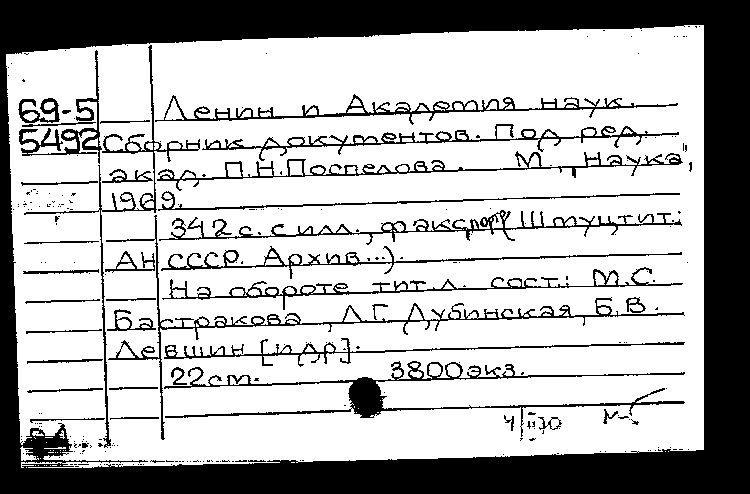 69-5 Ленин и Академия наук.
5492 Сборник документов. Под ред.
акад. П.Н.Поспелова. М., "Наука",
1969.
342 с. с илл., факс, портр (Ш туцтит.:
АН СССР. Архив...).
На обороте тит.л. сост.: М.С.
Бастракова, Л.Г. Дубинская, Б.В.
Левшин [и др].
22 cm. 3800 экз.
4/II 70